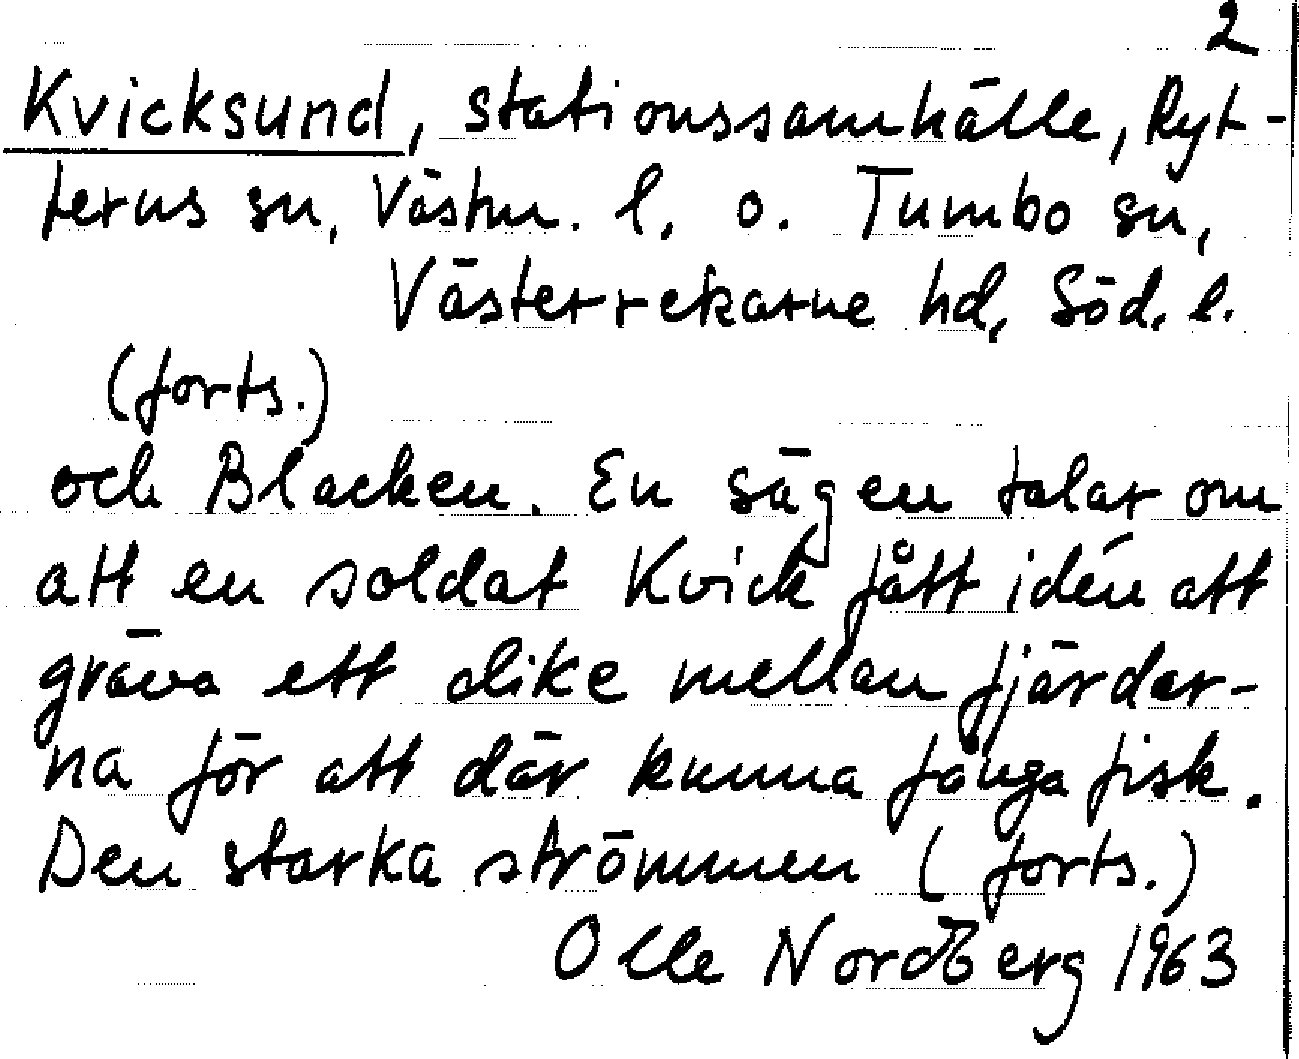 2
Kvicksund, stationssamhälle, Ryt-
terus sn, Västm. l. o. Tumbo sn,
Västerrekarne hd, Söd. l.
(forts.)
och Blacken. En sägen talar om
att en soldat Kvick fått idén att
gräva ett dike mellan fjärdar-
na för att där kunna fånga fisk.
Den starka strömmen (forts.)
Olle Nordberg 1963